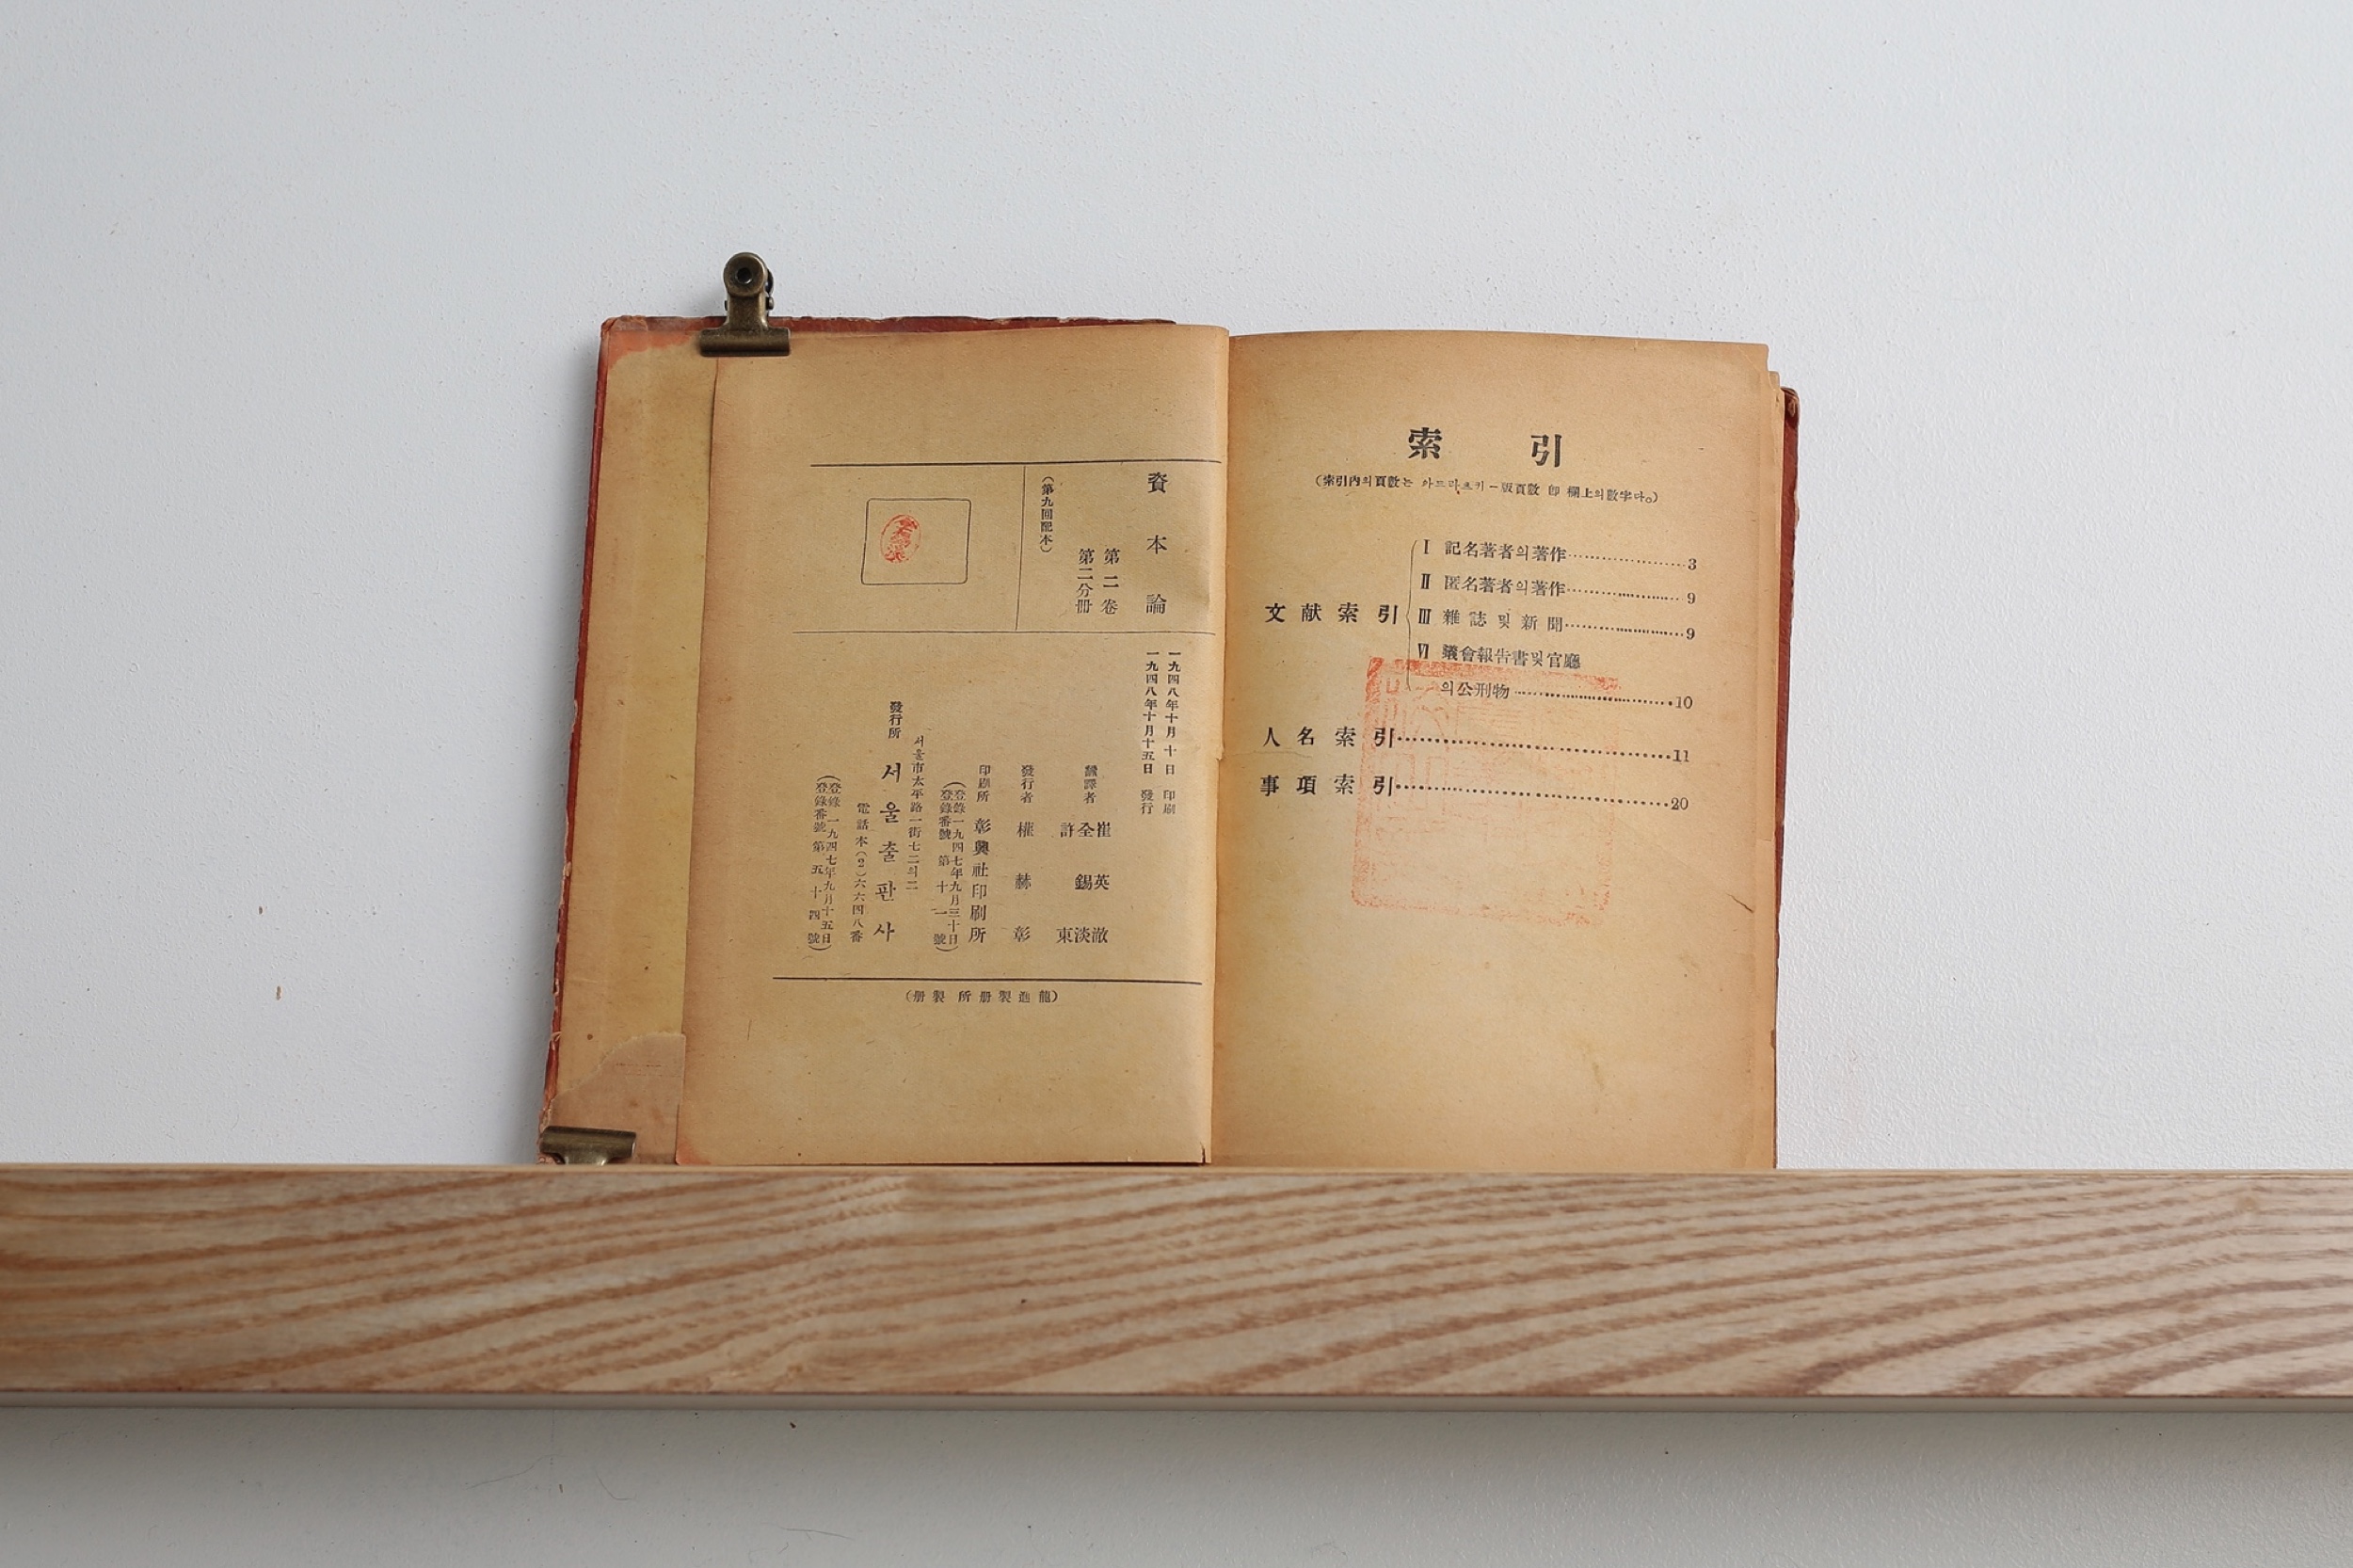 資本論
第二卷
第二分冊
(第九回配本)
一九四八年十月十日 印刷
一九四八年十月十五日 發行
飜譯者 崔英澈
全錫淡
許東
發行者 權赫彰
印刷所 彰興社印刷所
(登錄一九四七年九月三十日
登錄番號 第十一號)
서울市太平路一街七二의二
發行所 서울출판사
電話本(2)六六四八番
(登錄一九四七年九月十五日
登錄番號 第五十四號)
(龍進製册所 製册)
索引
(索引內의頁數는 아드라츠키-版頁數 卽 欄上의數字다。)
文献索引
I 記名著者의著作 3
II 匿名著者의著作 9
III 雜誌및新聞 9
VI 議會報告書및官廳
의公刑物 10
人名索引 11
事項索引 20